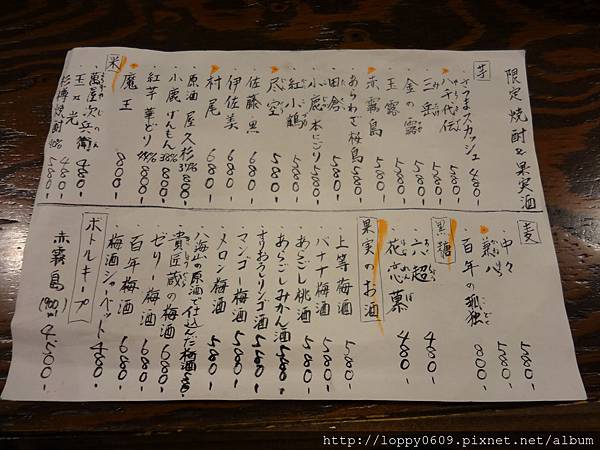 限定焼酎と果実酒
芋
さつまスカッシュ 480-
八千代伝 580-
三岳 580-
金の露 580-
玉露 580-
赤霧島 580-
あらわざ桜島 580-
田倉 580-
小鹿本にごり 580-
紅小鶴 580-
尽空 580-
佐藤黒 680-
伊佐美 680-
村尾 680-
原酒屋久杉 37% 800-
小鹿げんもん 38% 800-
紅芋華どり 44% 800-
魔王 800-
米
萬屋次兵衛 480-
玉乃光 480-
杉樽焼酎 40% 580-
麦
中々 580-
兼八 580-
百年の孤独 800-
黒糖
六超 480-
花恋慕 480-
果実のお酒
上等梅酒 580-
バナナ梅酒 580-
あらごし桃酒 580-
あらごしみかん酒 580-
すりおろしリンゴ酒 580-
マンゴー梅酒 580-
メロン梅酒 580-
八海山の原酒で仕込んだ梅酒 580-
貴匠蔵の梅酒 680-
ゼリー梅酒 680-
百年梅酒 680-
梅酒シャーベット 480-
ボトルキープ
赤霧島 (900ml) 4500-
http://loppy0609.pixnet.net/album